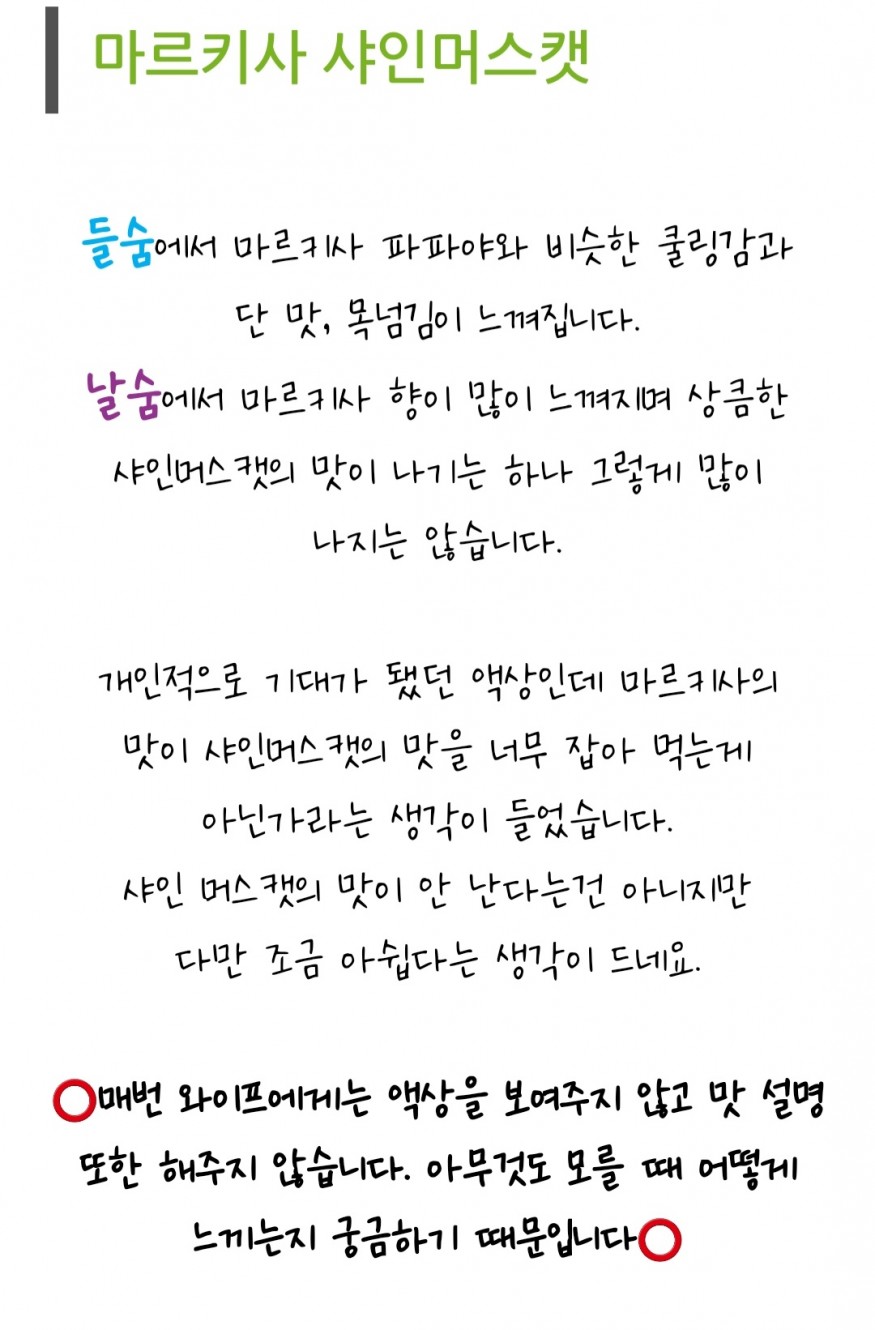 마르키사 샤인머스캣
들숨에서 마르키사 파파야와 비슷한 쿨링감과
단 맛, 목넘김이 느껴집니다.
날숨에서 마르키사 향이 많이 느껴지며 상큼한
샤인머스캣의 맛이 나기는 하나 그렇게 많이
나지는 않습니다.
개인적으로 기대가 됐던 액상인데 마르키사의
맛이 샤인머스캣의 맛을 너무 잡아 먹는게
아닌가라는 생각이 들었습니다.
샤인 머스캣의 맛이 안 난다는건 아니지만
다만 조금 아쉽다는 생각이 드네요.
⭕매번 와이프에게는 액상을 보여주지 않고 맛 설명
또한 해주지 않습니다. 아무것도 모를 때 어떻게
느끼는지 궁금하기 때문입니다⭕